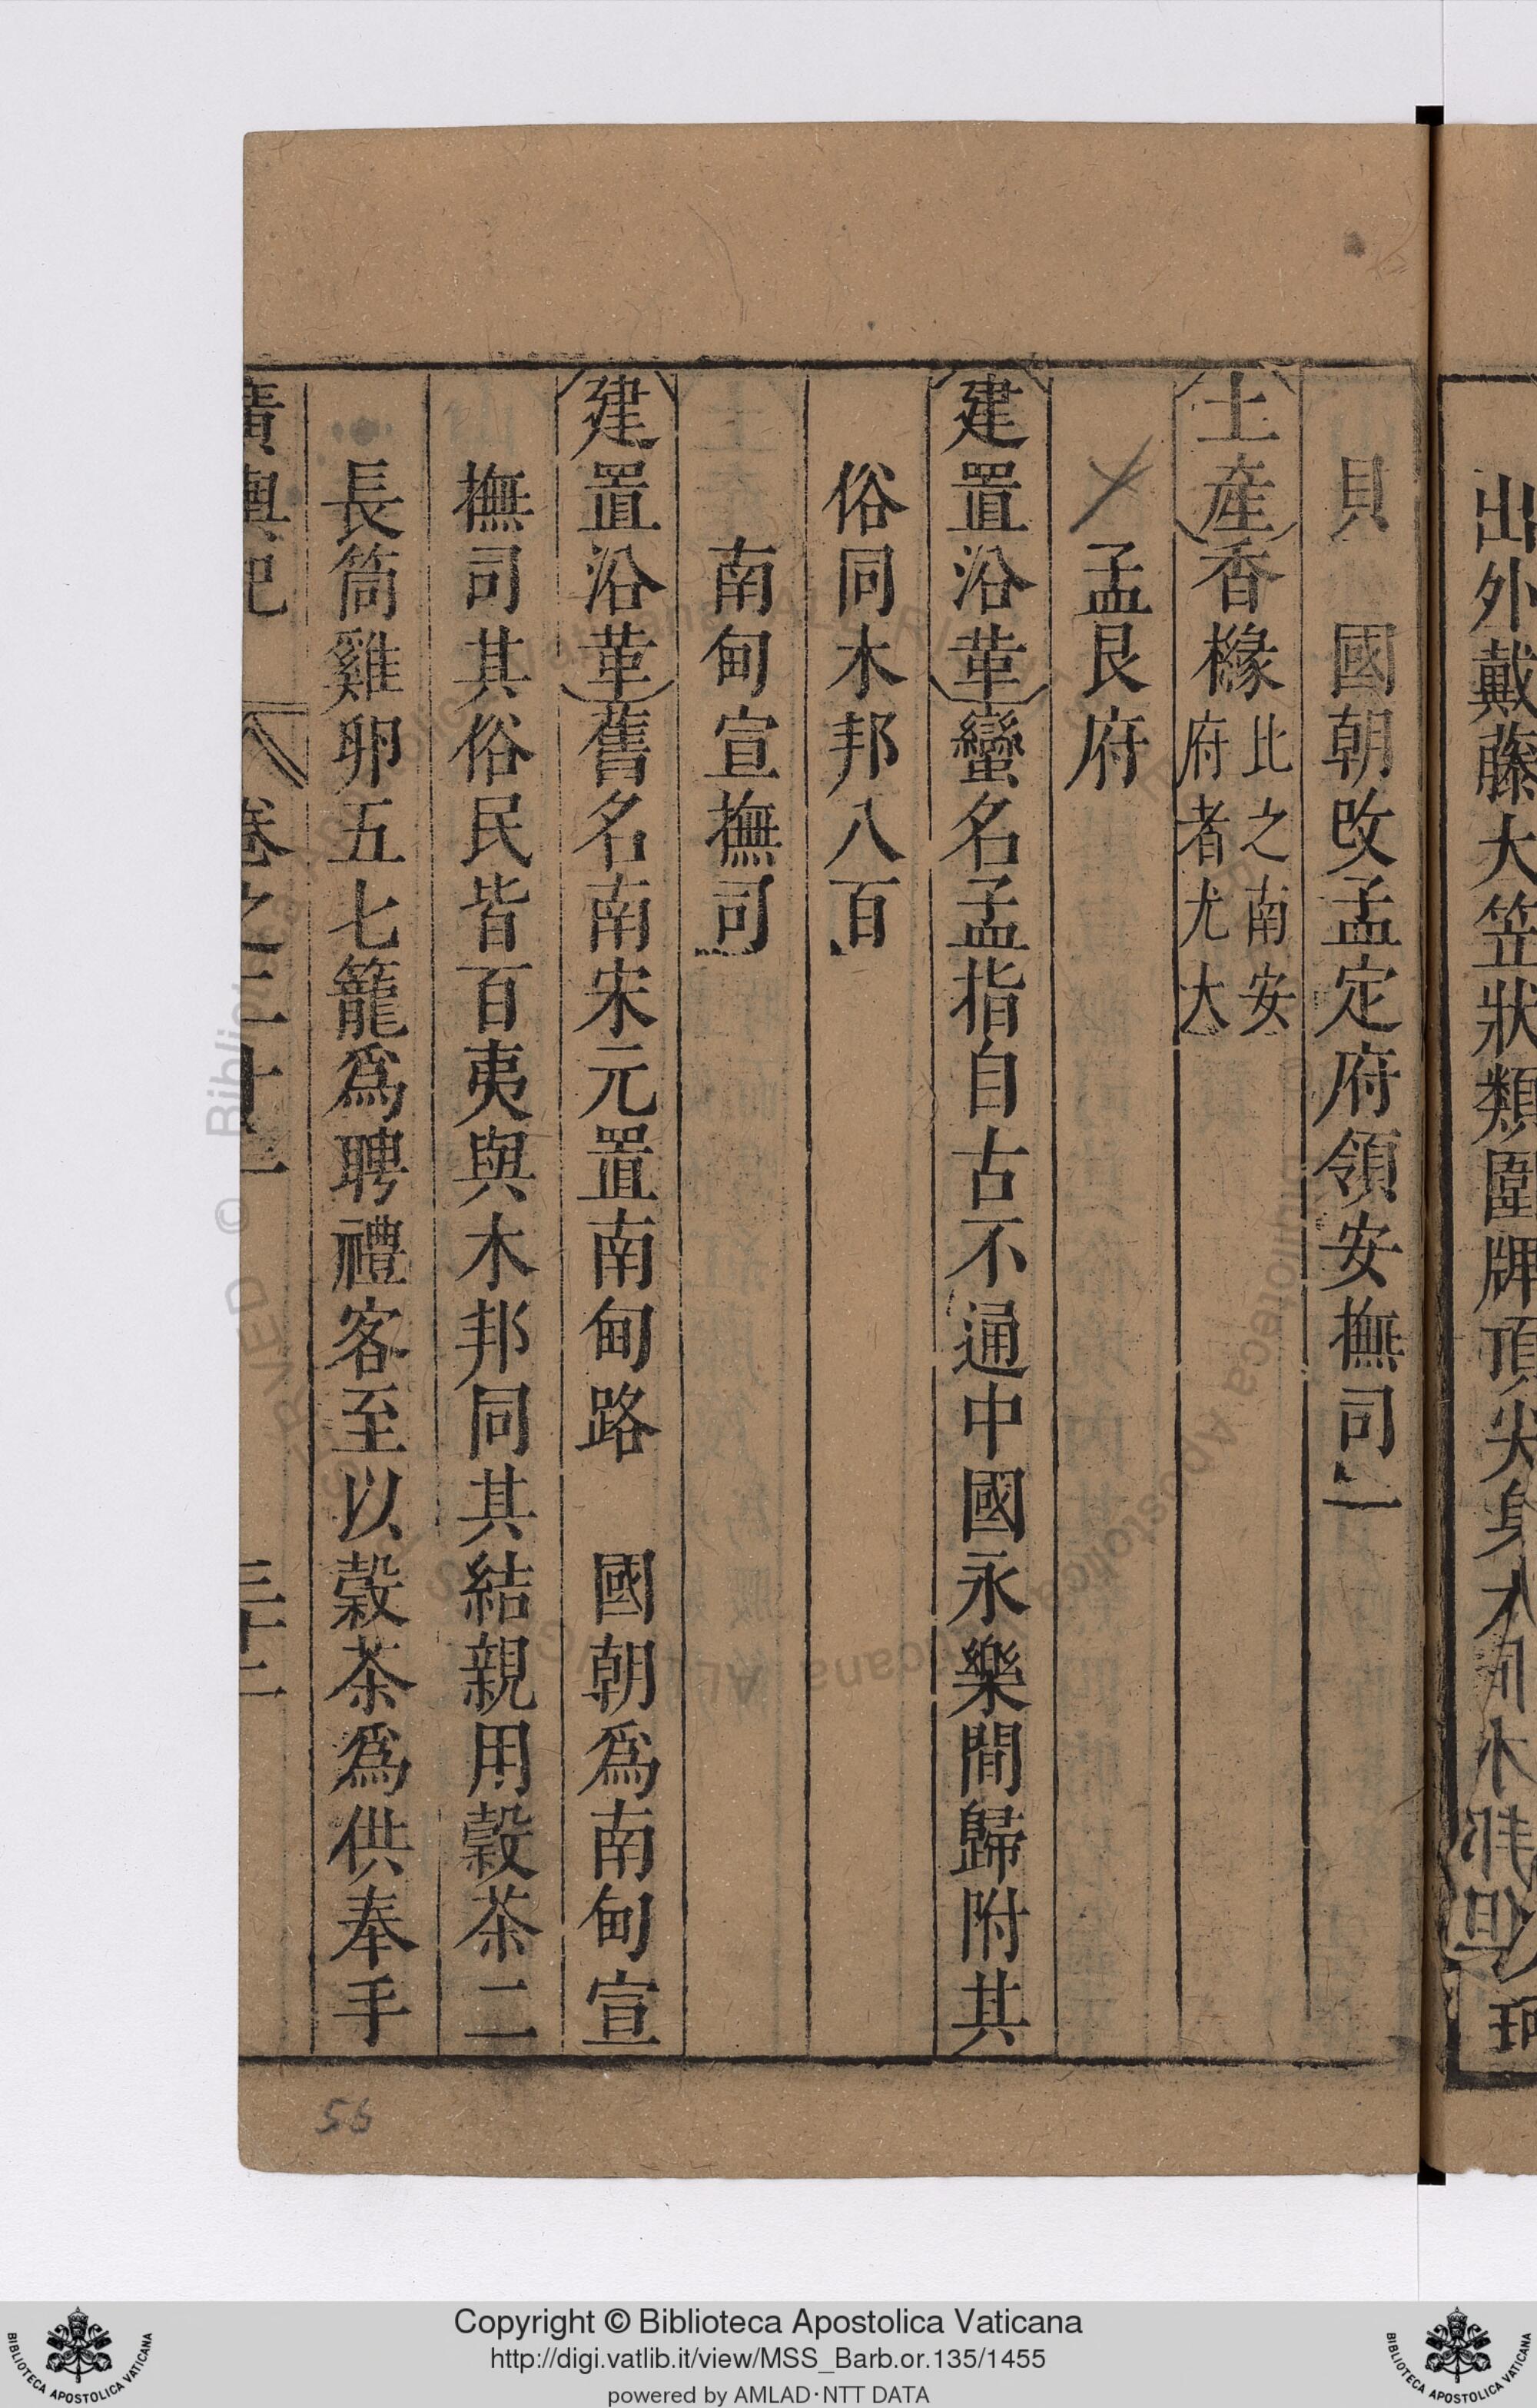 出外戴藤大笠狀類圍牌頂尖身
貝　國朝改孟定府領安撫司
土産香橼比之南安府者尤大
孟艮府
建置沿革蠻名孟指自古不通中國永樂間歸附其
俗同木邦八百
南甸宣撫司
建置沿革舊名南宋元置南甸路　國朝爲南甸宣
撫司其俗民皆百夷與木邦同其結親用穀茶二
長筒雞卵五七籠爲聘禮客至以穀茶爲供奉手
廣輿記　卷之二十一　三十二
56
© Biblioteca Apostolica Vaticana
Copyright © Biblioteca Apostolica Vaticana
http://digi.vatlib.it/view/MSS_Barb.or.135/1455
powered by AMLAD·NTT DATA
BIBLIOTECA APOSTOLICA VATICANA
BIBLIOTECA APOSTOLICA VATICANA